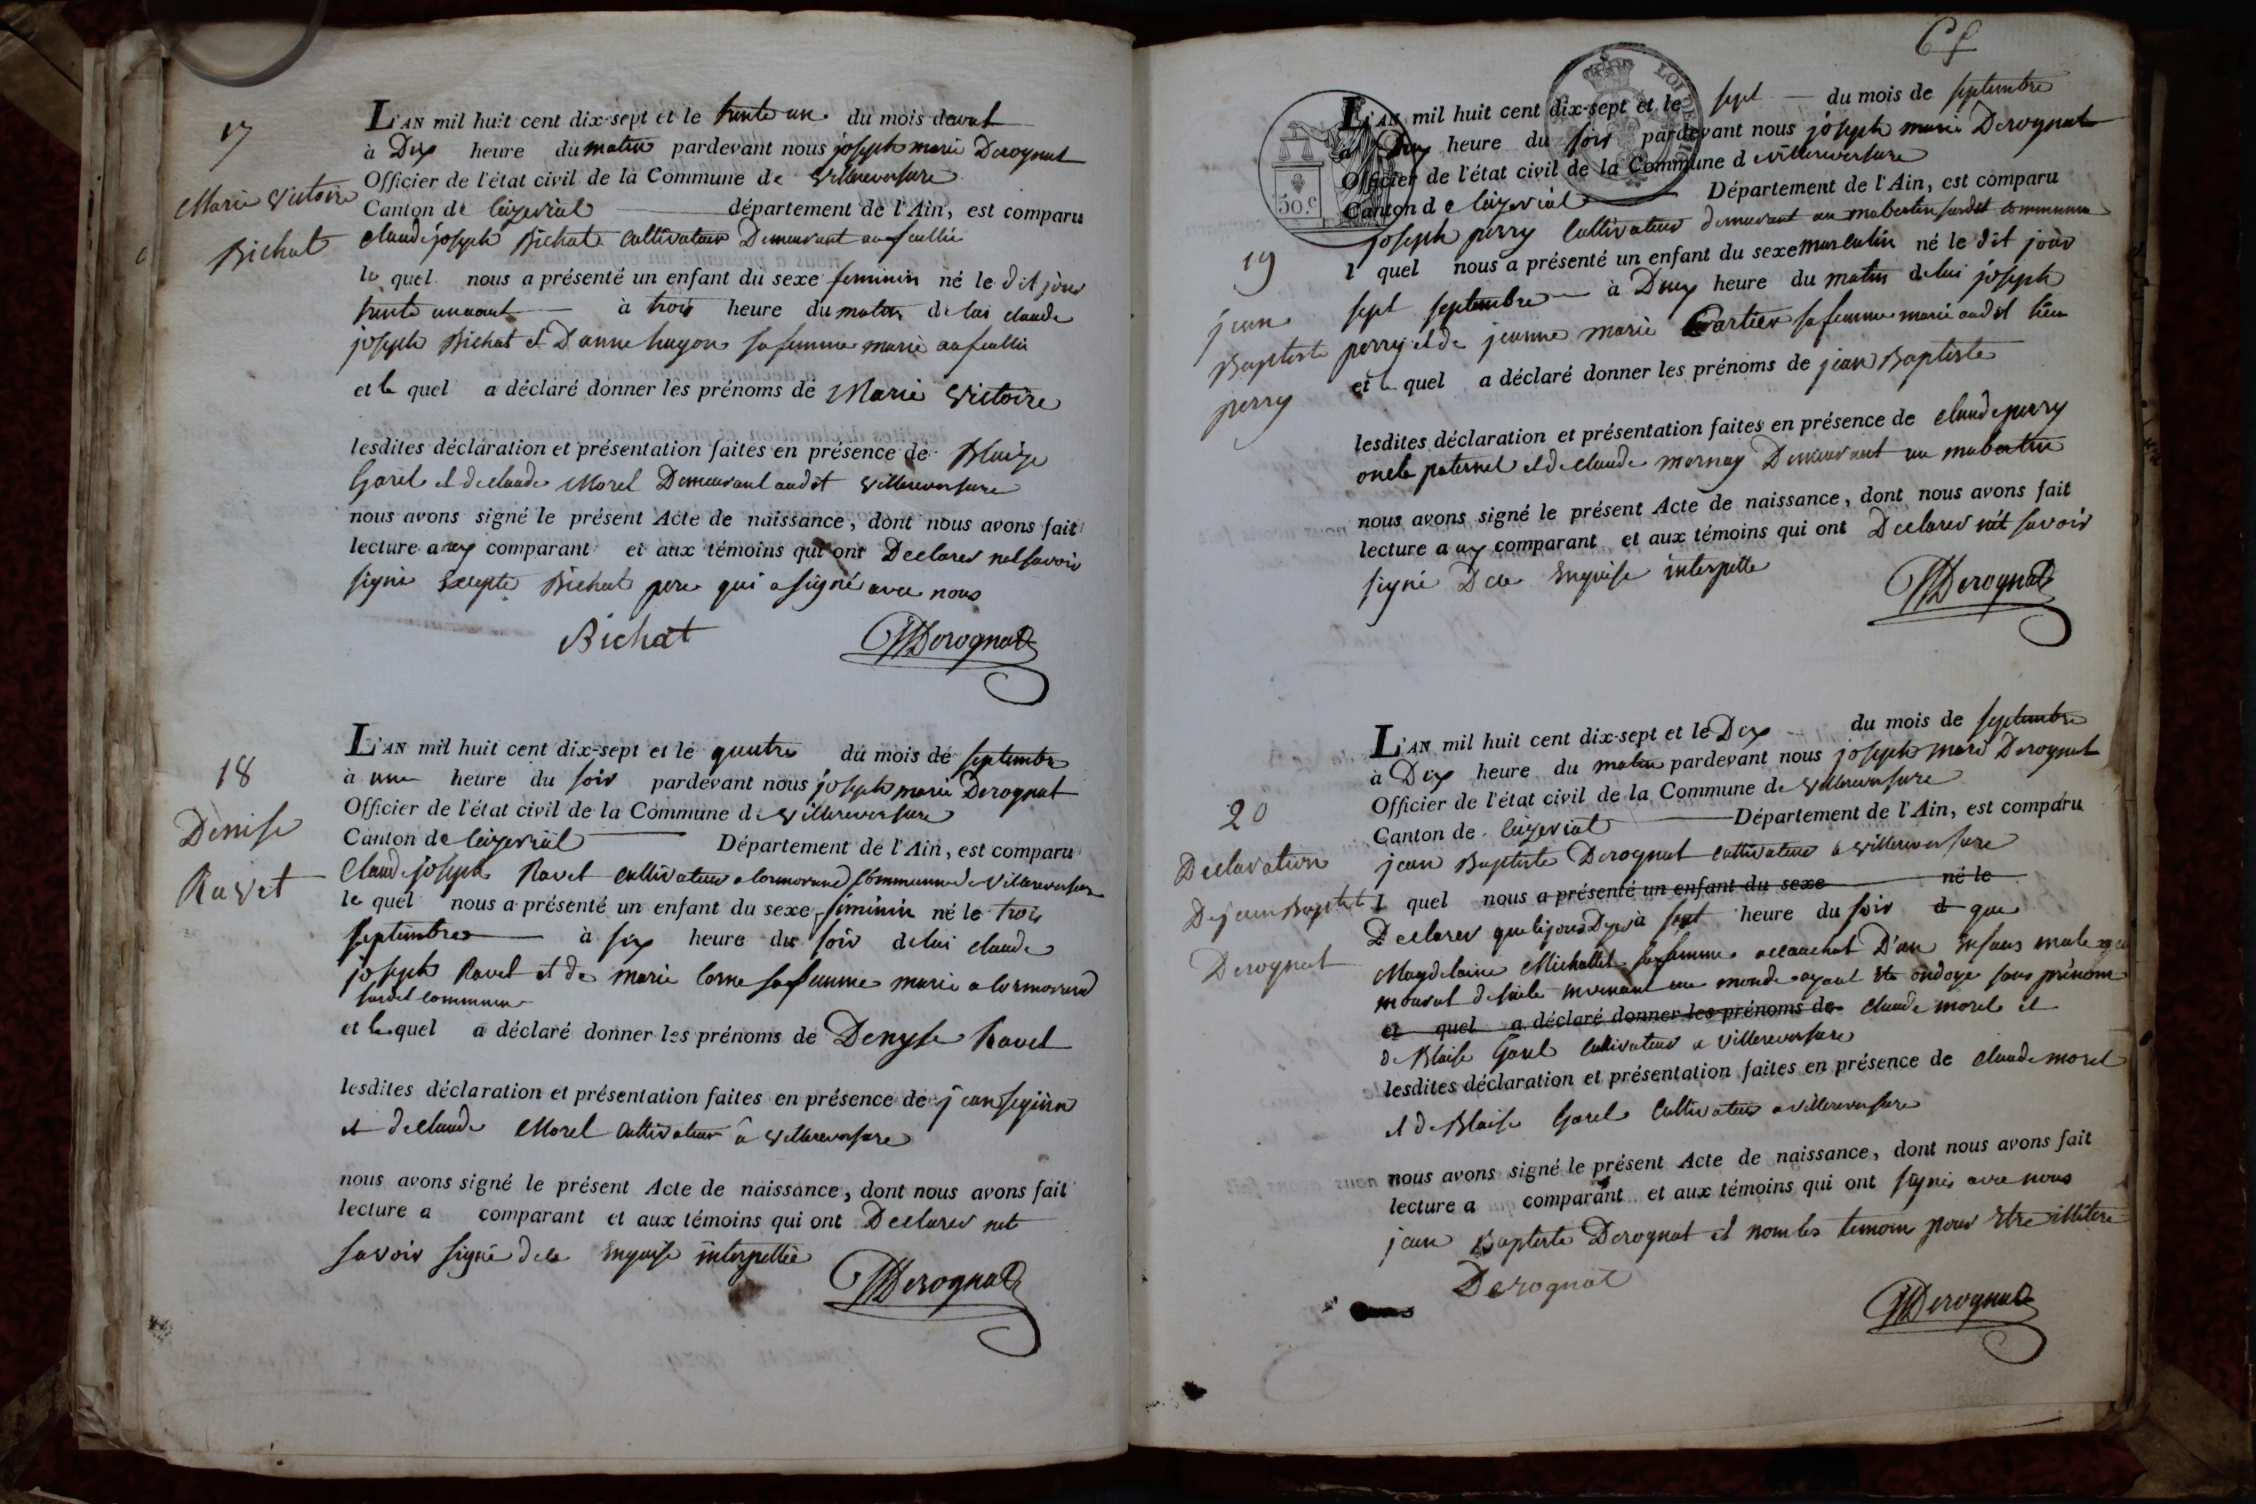 17
Marie Victoire
Bichat
L'AN mil huit cent dix-sept et le trente un du mois daout
à Dix heure du matin pardevant nous joseph marie Derognat
Officier de l'état civil de la Commune de villereversure
Canton de Ceyzeriat département de l'Ain, est comparu
claude joseph Bichat cultivateur Demeurant
le quel nous a présenté un enfant du sexe feminin né le dit jour
trente un aout à trois heure du matin de lui claude
joseph Bichat et D anne hugon sa femme marié
et le quel a déclaré donner les prénoms de Marie Victoire
lesdites déclaration et présentation faites en présence de Blaize
Garel et de claude Morel Demeurant audit villereversure
nous avons signé le présent Acte de naissance, dont nous avons fait
lecture a ux comparant et aux témoins qui ont Declarer nel savoir
signé Excepte Bichat pere qui a signé avec nous
Bichat Derognat
18
Denise
Ravet
L'AN mil huit cent dix-sept et le quatre du mois de septembre
à une heure du soir pardevant nous joseph marie Derognat
Officier de l'état civil de la Commune de villereversure
Canton de Ceyzeriat Département de l'Ain, est comparu
Claude joseph Ravet cultivateur a Cormorand Commune de Villereversure
le quel nous a présenté un enfant du sexe feminin né le trois
septembre à six heure du soir de lui claude
joseph Ravet et de marie Corne sa femme marié a Cormorand
surdit commune
et le quel a déclaré donner les prénoms de Denyse Ravet
lesdites déclaration et présentation faites en présence de jean
et de claude Morel cultivateur à villereversure
nous avons signé le présent Acte de naissance, dont nous avons fait
lecture a comparant et aux témoins qui ont Declarer net
savoir signé de ce Enquise interpellée
Derognat
LOI DE
50.c
19
jean
Baptiste
perry
L'AN mil huit cent dix-sept et le sept du mois de septembre
a Dix heure du soir pardevant nous joseph marie Derognat
Officier de l'état civil de la Commune d e villereversure
Canton d e Ceyzeriat Département de l'Ain, est comparu
joseph perry Cultivateur demeurant au mabertin surdit commune
l quel nous a présenté un enfant du sexe masculin né le dit jour
sept septembre à Deux heure du matin de lui joseph
perry et de jeanne marie Cartier sa femme marié audit lieu
et le quel a déclaré donner les prénoms de jean Baptiste
lesdites déclaration et présentation faites en présence de claude perry
oncle paternel et de claude mornay Demeurant au mabertin
nous avons signé le présent Acte de naissance, dont nous avons fait
lecture a ux comparant et aux témoins qui ont Declarer net savoir
signé De ce Enquise interpelle
Derognat
20
Declaration
De jean Baptiste
Derognat
L'AN mil huit cent dix-sept et le Dix du mois de septembre
à Dix heure du matin pardevant nous joseph marie Derognat
Officier de l'état civil de la Commune de villereversure
Canton de Ceyzeriat Département de l'Ain, est comparu
jean Baptiste Derognat cultivateur a villereversure
l quel nous a présenté un enfant du sexe né le
Declarer que le jour Dyer à sept heure du soir et que
Magdelaine Michallet sa femme accouchat D'un Enfans male
mourut de suite venant au monde ayant Ete ondoye sans prénom
et quel a déclaré donner les prénoms de claude morel et
de Blaise Garel cultivateur a villereversure
lesdites déclaration et présentation faites en présence de claude morel
et de Blaise Garel Cultivateur a villereversure
nous avons signé le présent Acte de naissance, dont nous avons fait
lecture a comparant et aux témoins qui ont signés avec nous
jean Baptiste Derognat et non les temoin pour Etre illitere
Derognat
Derognat